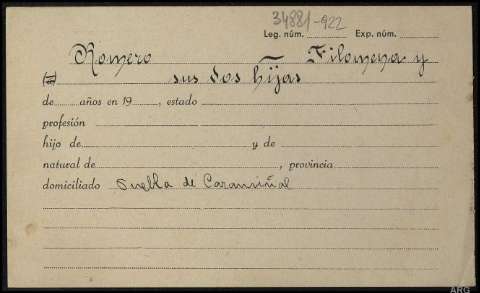 34881-922
Leg. núm. Exp. núm.
Romero Filomena y
sus dos hijas
de años en 19 , estado
profesión
hijo de y de
natural de , provincia
domiciliado Puebla de Caramiñal
ARG